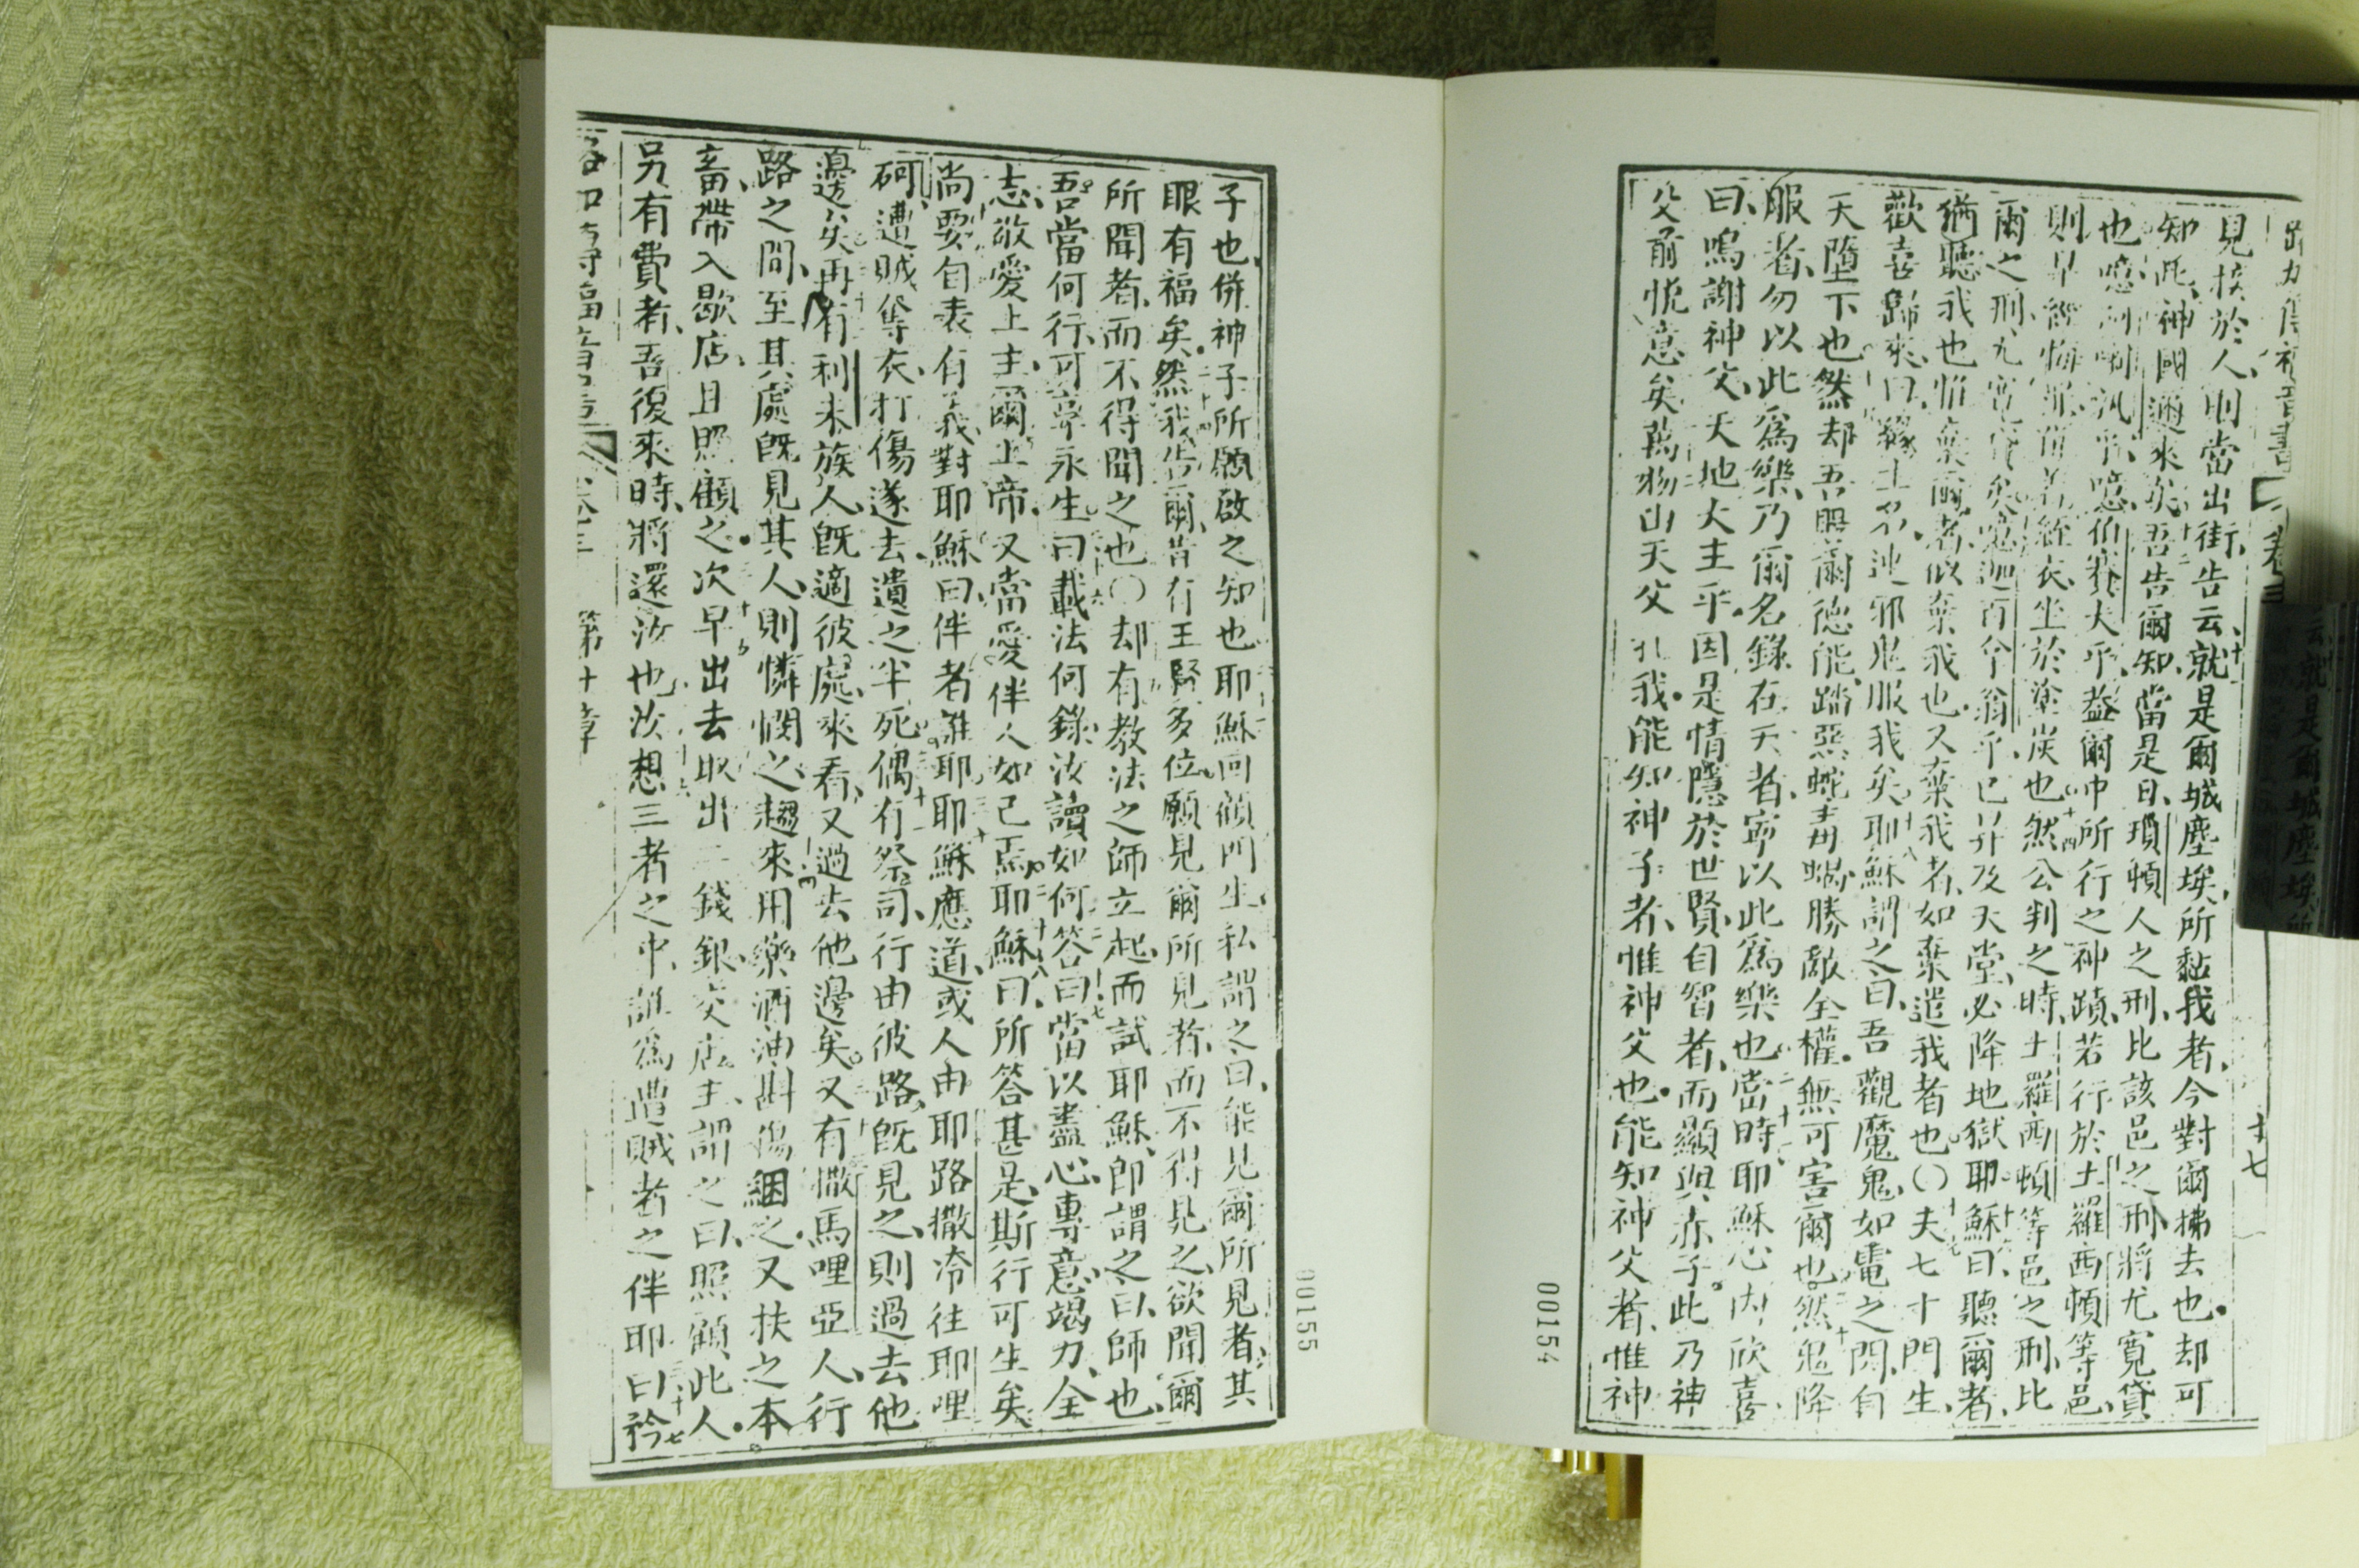 見接於人、則當出街、告云、就是爾城塵埃、所黏我者、今對爾拂去也、却可
知此、神國邇來矣、吾告爾知、當是日、瑣頓人之刑、比該邑之刑、將尤寬貸
也、噫、乎、噫、伯賽大乎、蓋爾中所行之神蹟、若行於土羅西頓等邑、
則早經悔罪、衣坐於塗炭也、然公判之時、土羅西頓等邑之刑、比
爾之刑、尤寬貸矣、噫、迦百翁乎、已升及天堂、必降地獄、耶穌曰、聽爾者、
猶聽我也、棄爾者、似棄我也、又棄我者、如棄遣我者也、〇夫七十門生、
歡喜歸來、曰、緣主名、連邪鬼服我矣、耶穌謂之曰、吾觀魔鬼、如電之閃、自
天墮下也、然却吾賜爾德能、踏惡蛇毒蝎、勝敵全權、無可害爾也、然鬼降
服者、勿以此爲樂、乃爾名錄在天者、寧以此爲樂也、當時、耶穌心內欣喜
曰、鳴謝神父、天地大主乎、因是情隱於世賢、自智者、而顯與赤子、此乃神
父前悅意矣、萬物由天父 我、能知神子者、惟神父也、能知神父者、惟神
十七
00154
子也、併神子所願啟之知也、耶穌回顧門生、私謂之曰、能見爾所見者、其
眼有福矣、然我告爾、昔有王賢多位、願見爾所見者、而不得見之、欲聞爾
所聞者、而不得聞之也、〇却有教法之師立起、而試耶穌、即謂之曰、師也、
吾當何行、可享永生、曰、載法何錄、汝讀如何、答曰、當以盡心、專意、竭力、全
志、敬愛上主、爾上帝、又當愛伴人如己焉、耶穌曰、所答甚是、斯行可生矣
尚要自表有義、對耶穌曰、伴者誰耶、耶穌應道、或人由耶路撒冷往耶哩
哬、遭賊奪衣、打傷遂去、遺之半死、偶有祭司、行由彼路、既見之、則過去他
邊矣、再有利未族人、既適彼處、來看、又過去他邊矣、又有撒馬哩亞人、行
路之間、至其處、既見其人、則憐憫之、趨來用藥酒油斟傷綑之、又扶之本
畜、帶入歇店、且照顧之、次早出去、取出二錢銀、交店主、謂之曰、照顧此人、
另有費者、吾復來時、將還汝也、汝想三者之中、誰爲遭賊者之伴耶、曰、矜
第十章
00155